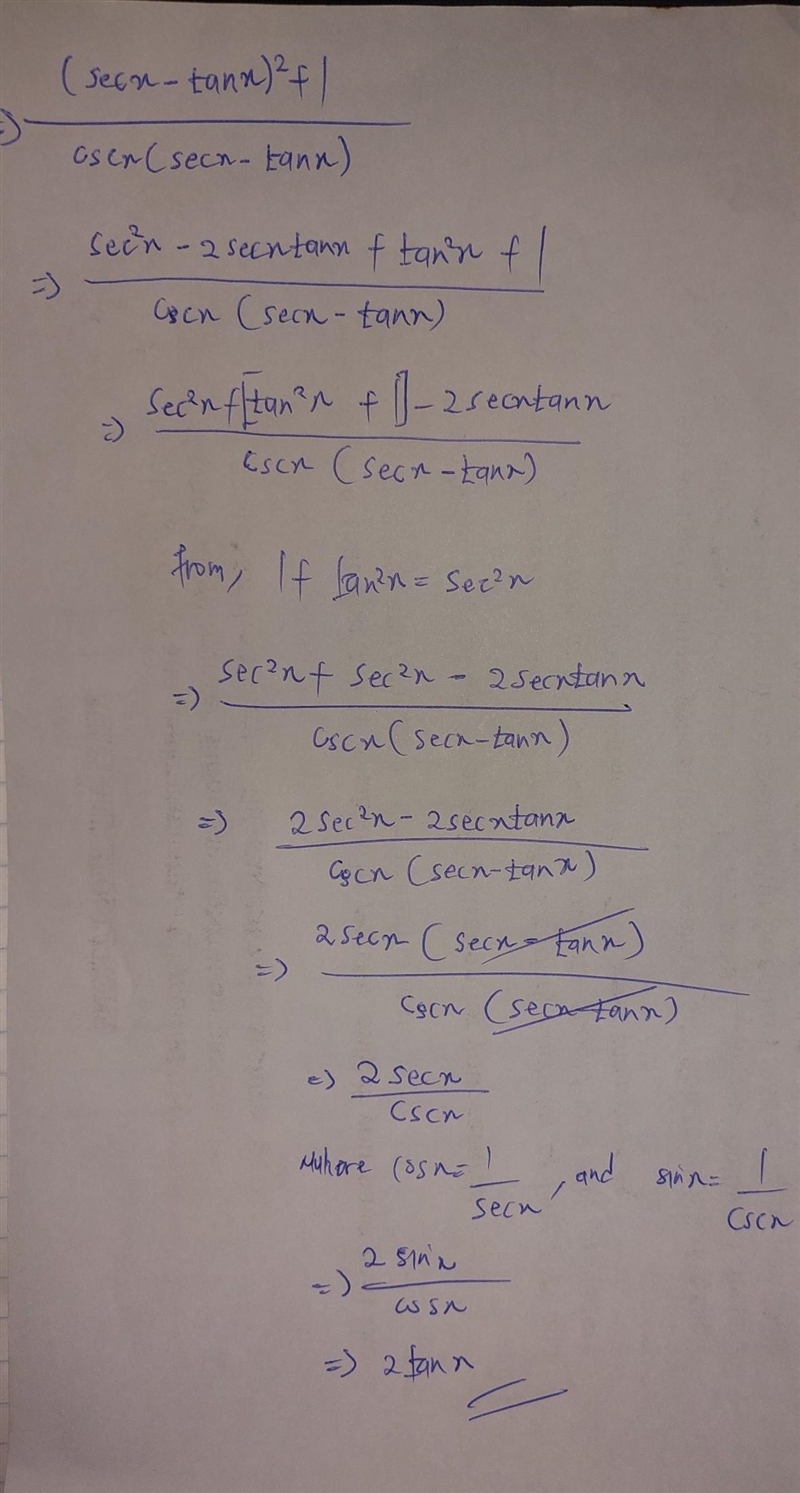 (secx - tanx)² + 1
⇒ ―――――
cscx (secx - tanx)
sec²x - 2secxtanx + tan²x + 1
⇒ ―――――
cscx (secx - tanx)
sec²x + [tan²x + 1] - 2secxtanx
⇒ ―――――
cscx (secx - tanx)
from, 1 + tan²x = sec²x
sec²x + sec²x - 2secxtanx
⇒ ―――――
cscx (secx - tanx)
2sec²x - 2secxtanx
⇒ ―――――
cscx (secx - tanx)
2secx (secx - tanx)
⇒ ―――――
cscx (secx - tanx)
⇒ 2secx
―――――
cscx
where cosx = 1/secx, and sinx = 1/cscx
2 sinx
⇒ ―――――
cosx
⇒ 2tanx